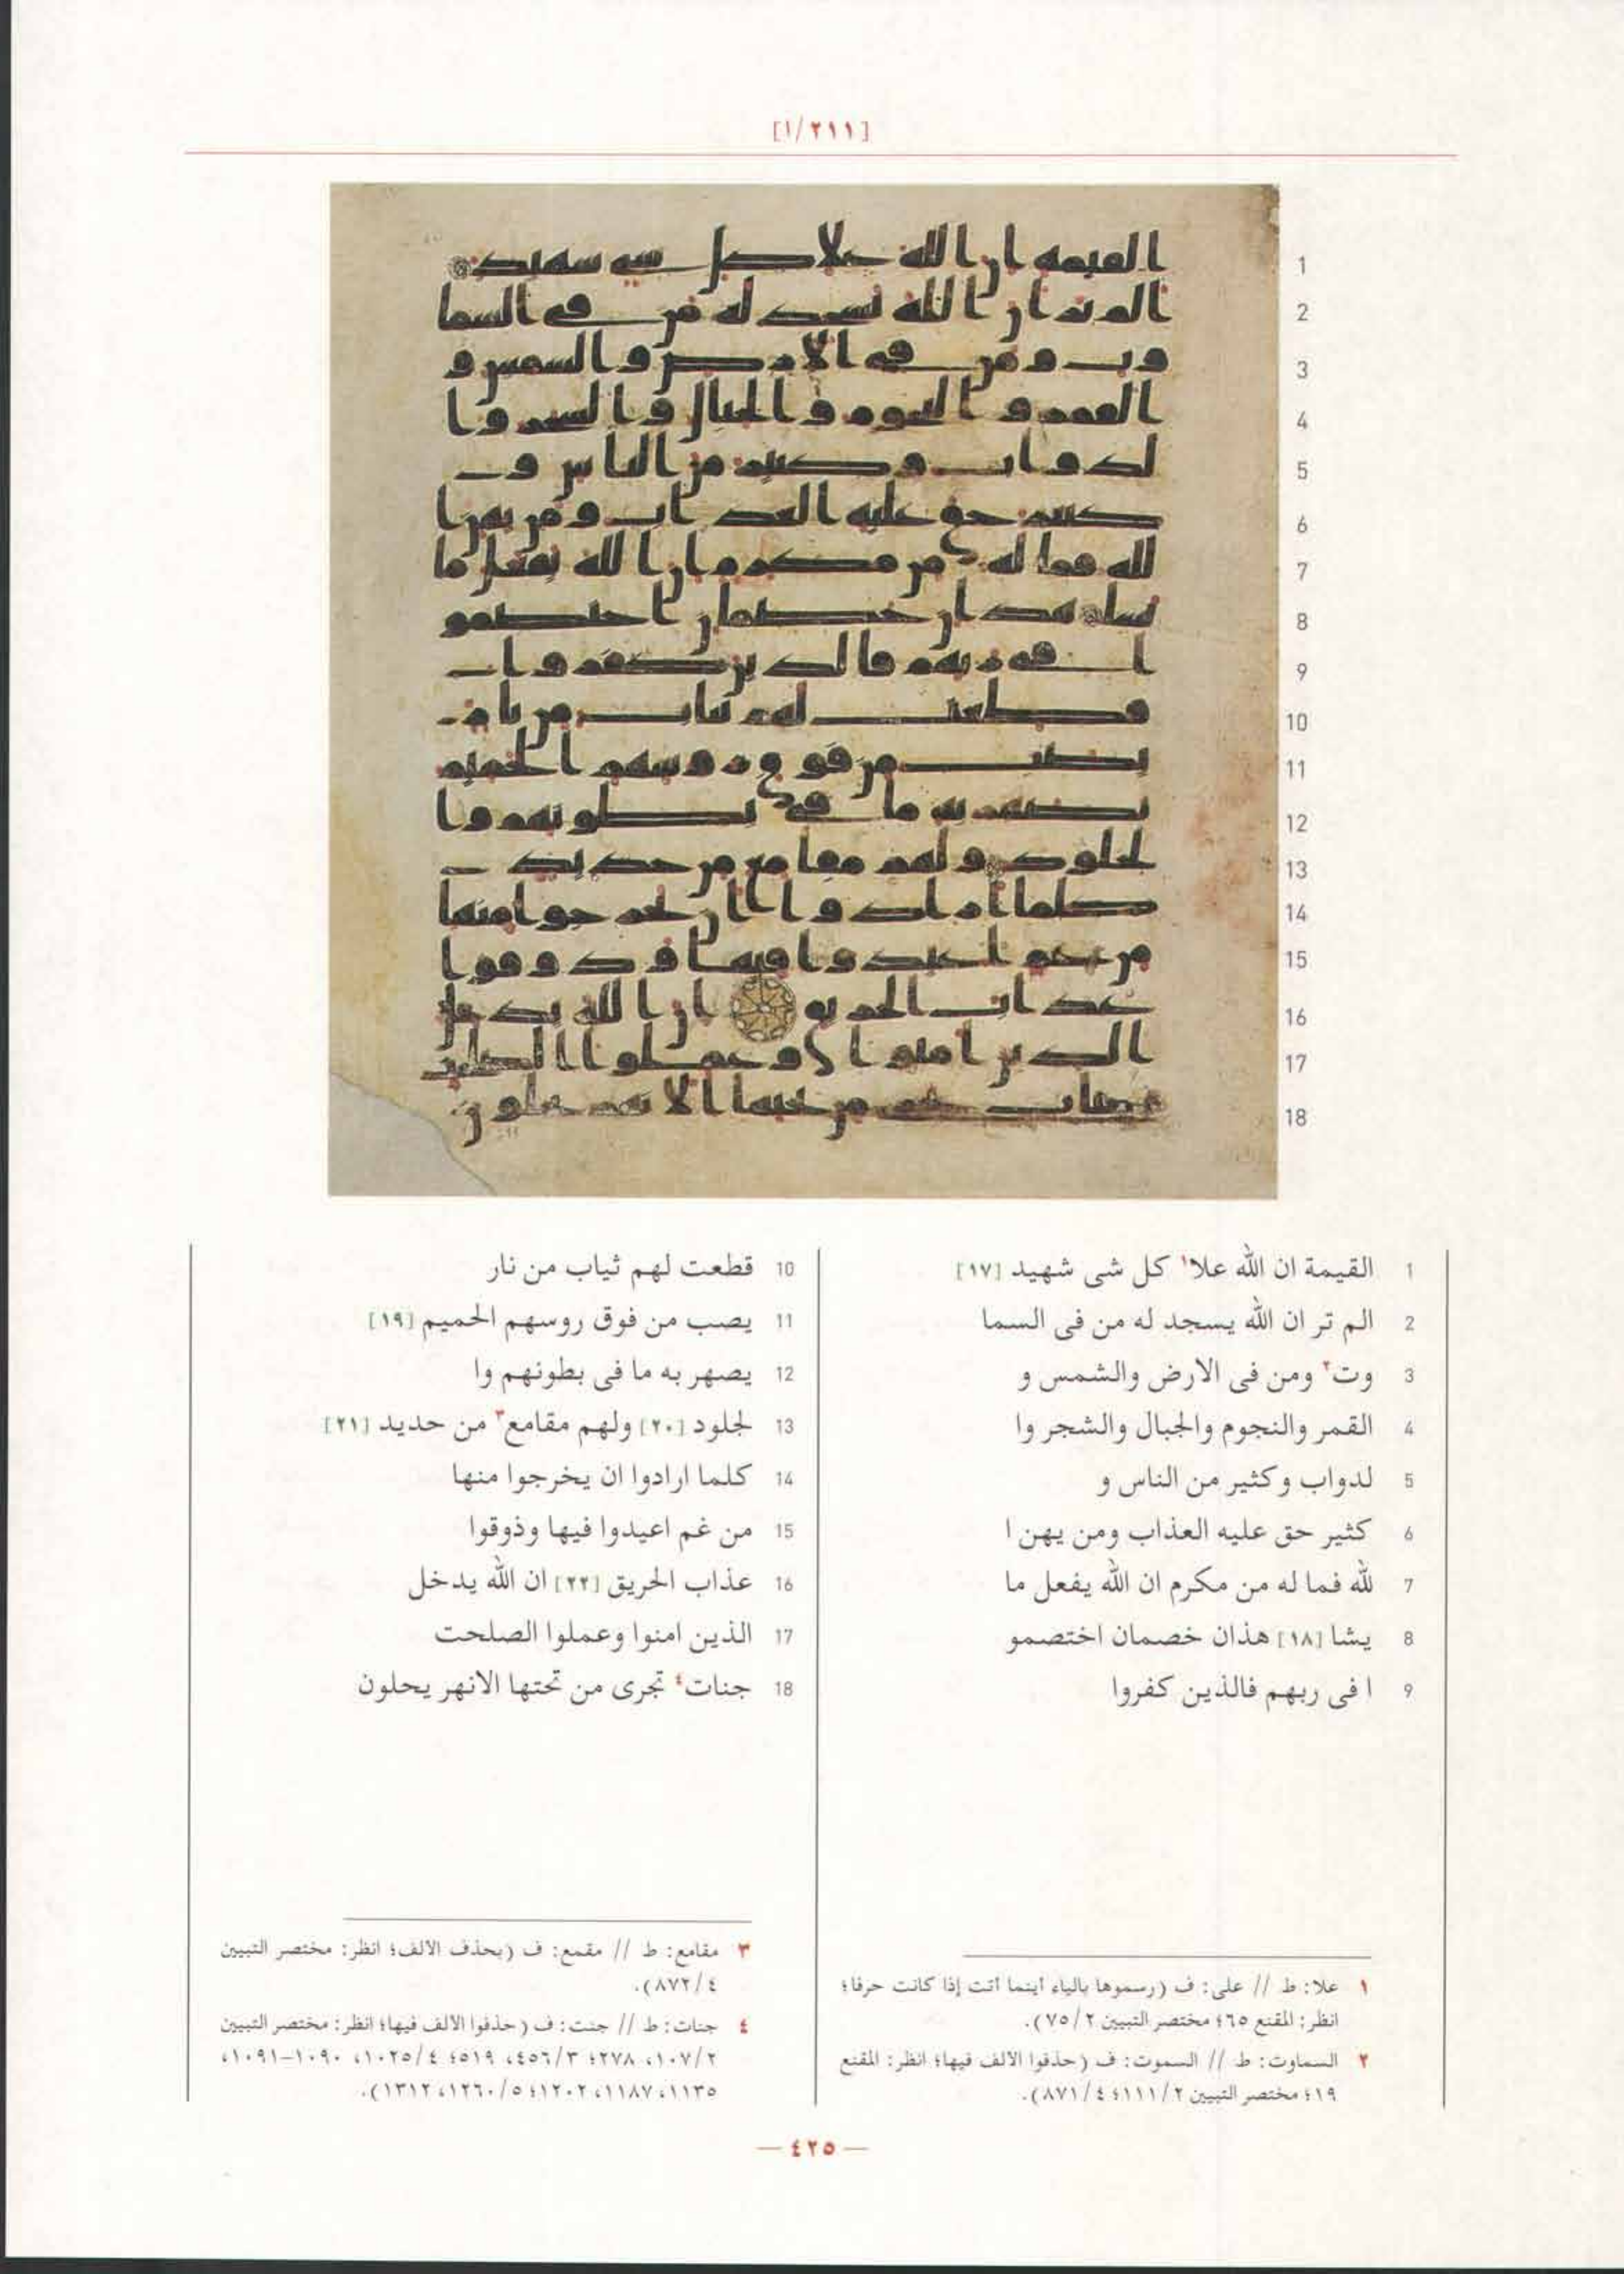 [٢١١/١]
1 القيمة ان الله علا١ كل شى شهيد [١٧]
2 الم تر ان الله يسجد له من فى السما
3 وت٢ ومن فى الارض والشمس و
4 القمر والنجوم والجبال والشجر وا
5 لدواب وكثير من الناس و
6 كثير حق عليه العذاب ومن يهن ا
7 لله فما له من مكرم ان الله يفعل ما
8 يشا [١٨] هذان خصمان اختصمو
9 ا فى ربهم فالذين كفروا
10 قطعت لهم ثياب من نار
11 يصب من فوق روسهم الحميم [١٩]
12 يصهر به ما فى بطونهم وا
13 لجلود [٢٠] ولهم مقامع٣ من حديد [٢١]
14 كلما ارادوا ان يخرجوا منها
15 من غم اعيدوا فيها وذوقوا
16 عذاب الحريق [٢٢] ان الله يدخل
17 الذين امنوا وعملوا الصلحت
18 جنات٤ تجرى من تحتها الانهر يحلون
١ علا: ط // على: ف (رسموها بالياء أينما أتت إذا كانت حرفا؛
انظر: المقنع ٦٥؛ مختصر التبيين ٧٥/٢).
٢ السماوت: ط // السموت: ف (حذفوا الالف فيها؛ انظر: المقنع
١٩؛ مختصر التبيين ١١١/٢؛ ٨٧١/٤).
٣ مقامع: ط // مقمع: ف (بحذف الالف؛ انظر: مختصر التبيين
٨٧٢/٤).
٤ جنات: ط // جنت: ف (حذفوا الالف فيها؛ انظر: مختصر التبيين
١٠٧/٢، ٢٧٨؛ ٤٥٦/٣، ٥١٩؛ ١٠٢٥/٤، ١٠٩٠-١٠٩١،
١١٣٥، ١١٨٧، ١٢٠٢؛ ١٢٦٠/٥، ١٣١٢).
— ٤٢٥ —